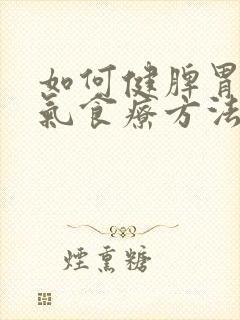 如何健脾胃
氣食療方法
煙熏糖